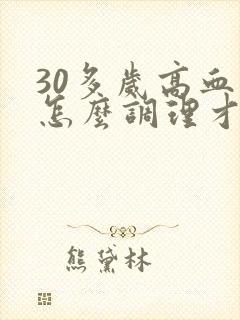 30多歲高血
怎麼調理才
熊黛林